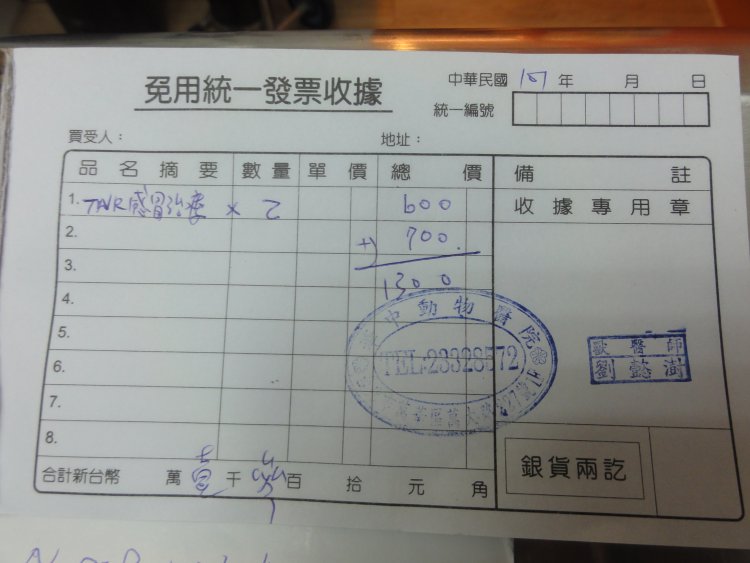 免用統一發票收據
中華民國 101 年 月 日
統一編號
買受人：
地址：
品名摘要 數量 單價 總價 備註
1. TNR感冒治療 × 2 600
收據專用章
2. +) 700
3. 1300
4.
中動物醫院
5.
TEL:23328572
獸醫師
劉懿澍
6.
7.
8.
銀貨兩訖
合計新台幣 萬 壹 千 參 百 拾 元 角